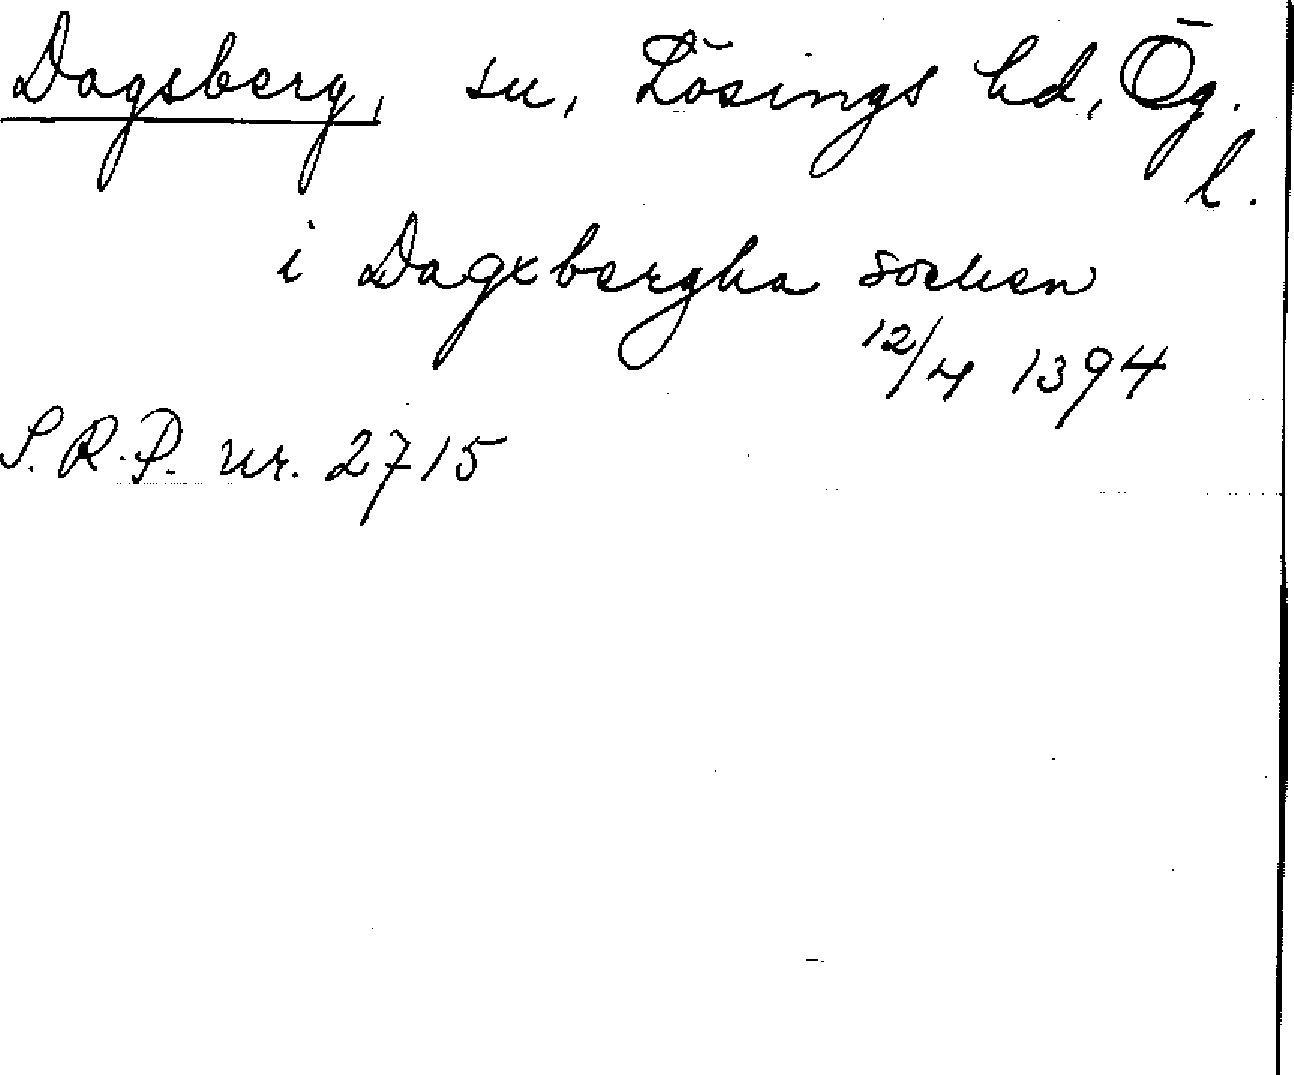 Dagsberg, sn, Lösings hd, Ög.
l.
i Dagxbergha socken
12/4 1394
S.R.P. nr. 2715